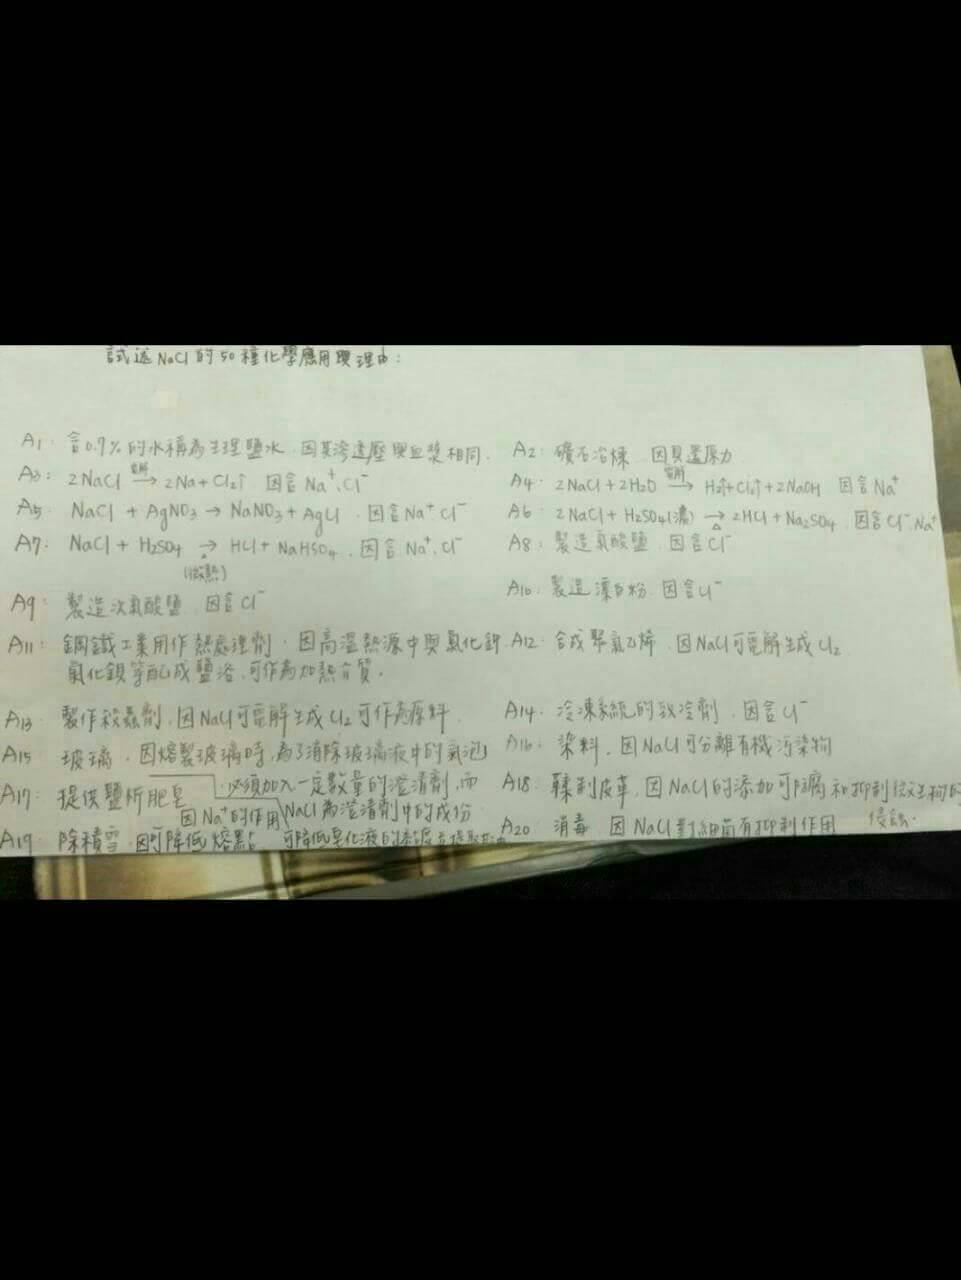 試述NaCl的50種化學應用與理由:
A1: 含0.9%的水稱為生理鹽水,因其滲透壓與血漿相同.
A2: 礦石冶煉,因具還原力
A3: 2NaCl 電解→ 2Na+Cl2↑ 因含Na⁺,Cl⁻
A4: 2NaCl+2H2O 電解→ H2↑+Cl2↑+2NaOH 因含Na⁺
A5: NaCl + AgNO3 → NaNO3+AgCl,因含Na⁺Cl⁻
A6: 2NaCl+H2SO4(濃) →△ 2HCl+Na2SO4,因含Cl⁻Na⁺
A7: NaCl + H2SO4 →△ HCl+NaHSO4,因含Na⁺,Cl⁻
(微熱)
A8: 製造氯酸鹽,因含Cl⁻
A9: 製造次氯酸鹽,因含Cl⁻
A10: 製造漂白粉,因含Cl⁻
A11: 鋼鐵工業用作熱處理劑,因高溫熱源中與氯化鉀.
氯化鋇等配成鹽浴,可作為加熱介質。
A12: 合成聚氯乙烯,因NaCl可電解生成Cl2
A13: 製作殺蟲劑,因NaCl可電解生成Cl2可作為原料
A14: 冷凍系統的致冷劑,因含Cl⁻
A15: 玻璃,因熔製玻璃時,為了消除玻璃液中的氣泡
必須加入一定數量的澄清劑,而
NaCl為澄清劑中的成份
A16: 染料,因NaCl可分離有機污染物
A17: 提供鹽析肥皂
因Na⁺的作用
可降低皂化液的
A18: 鞣制皮革,因NaCl的添加可防腐和抑制微生物的
侵蝕.
A19: 除積雪,因可降低熔點
A20: 消毒 因NaCl對細菌有抑制作用